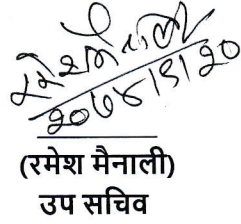 रमेश मैनाली
२०७४।९।२०
(रमेश मैनाली)
उप सचिव